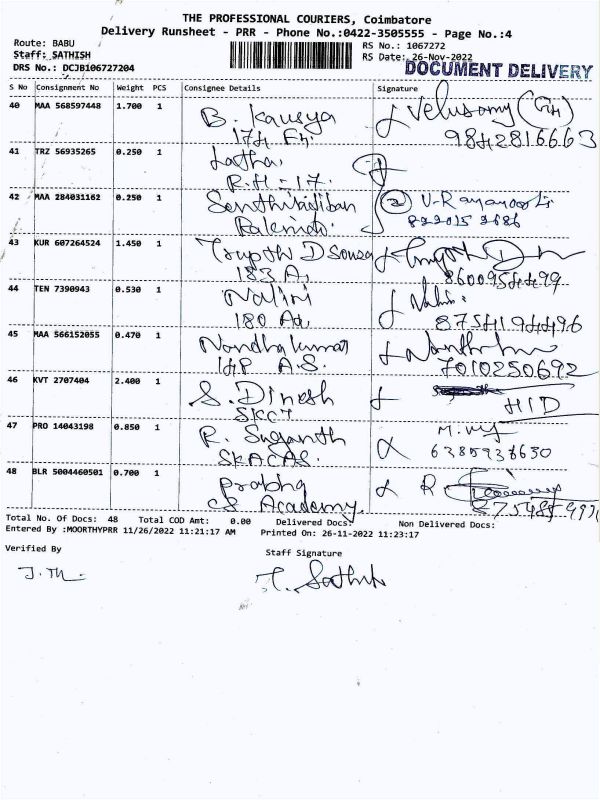 THE PROFESSIONAL COURIERS, Coimbatore
Delivery Runsheet - PRR - Phone No.:0422-3505555 - Page No.:4
Route: BABU
RS No.: 1067272
Staff: SATHISH
RS Date: 26-Nov-2022
DRS No.: DCJB106727204
DOCUMENT DELIVERY
S No Consignment No Weight PCS Consignee Details Signature
40 MAA 568597448 1.700 1 B. Kausya Velusamy
174 9842816663
41 TRZ 56935265 0.250 1 Latha
R.H-17.
42 MAA 284031162 0.250 1
43 KUR 607264524 1.450 1 Trupth D Souza
183 A,
44 TEN 7390943 0.530 1 Nalini
180 8754194496
45 MAA 566152055 0.470 1 Nandhakumar
148 A.S. 7010250692
46 KVT 2707404 2.400 1 S. Dinesh
SKCT HID
47 PRO 14043198 0.850 1 R. Suganth
SKACAS. 6385936630
48 BLR 5004460501 0.700 1 Prabha R
CS Academy.
Total No. Of Docs: 48 Total COD Amt: 0.00 Delivered Docs: Non Delivered Docs:
Entered By :MOORTHYPRR 11/26/2022 11:21:17 AM Printed On: 26-11-2022 11:23:17
Verified By Staff Signature
T. Sathish